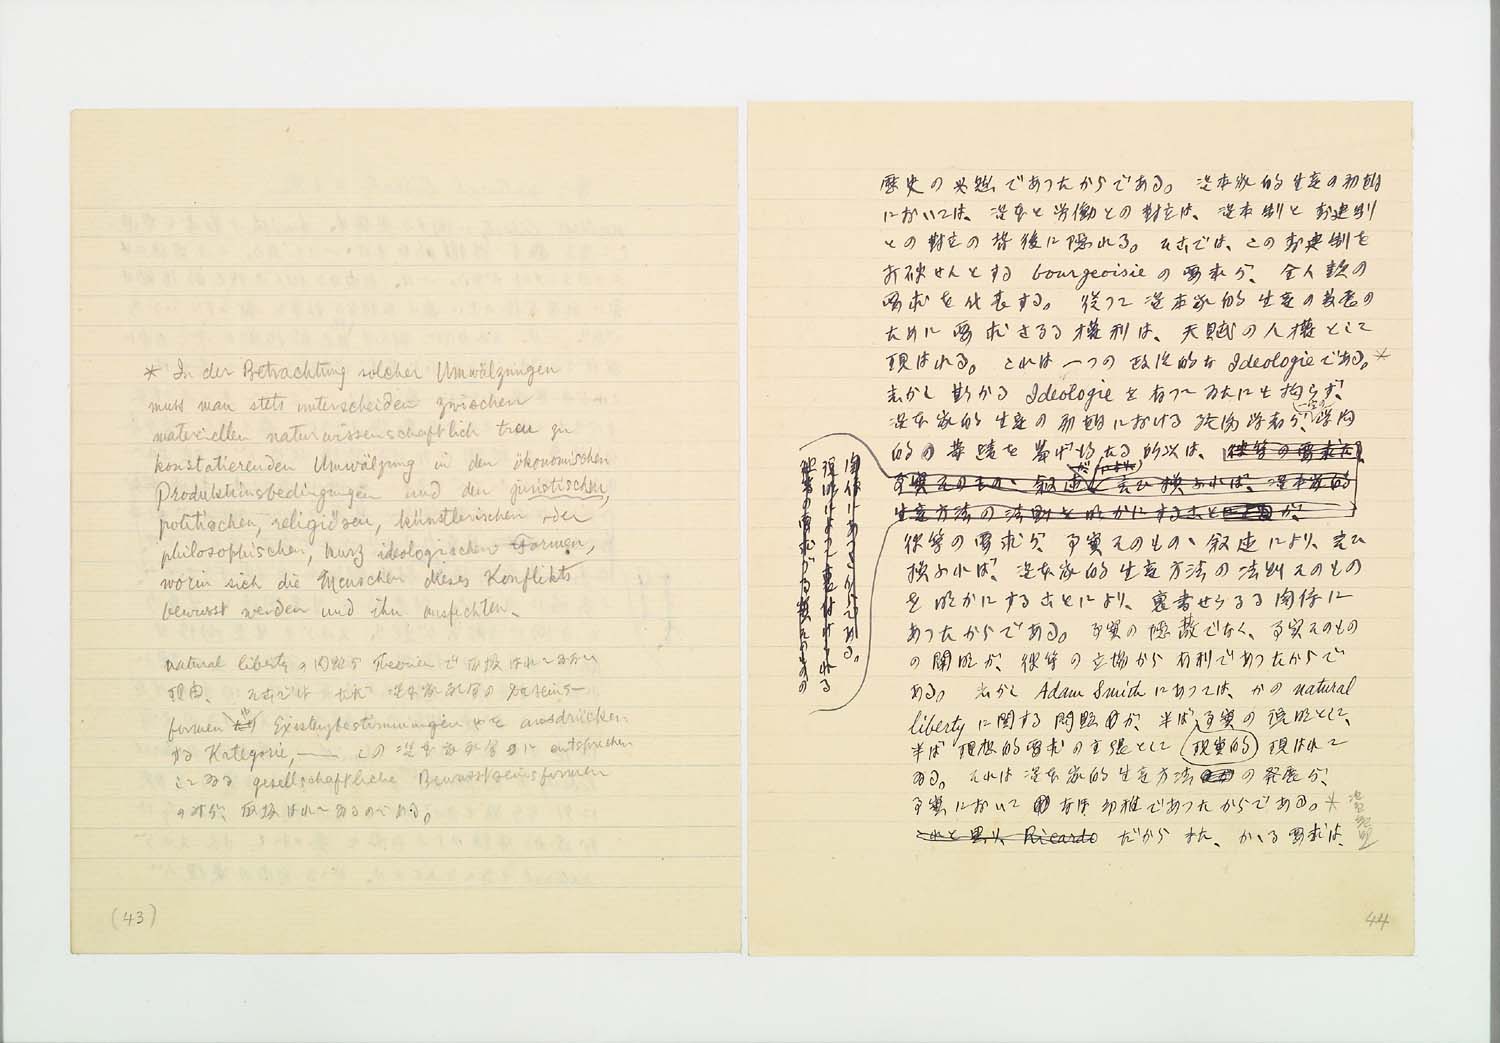 * In der Betrachtung solcher Umwälzungen
muss man stets unterscheiden zwischen
materiellen naturwissenschaftlich treu zu
konstatierenden Umwälzung in den ökonomischen
Produktionsbedingungen und den juristischen,
politischen, religiösen, künstlerischen oder
philosophischen, kurz ideologischen Formen,
worin sich die Menschen dieses Konflikts
bewusst werden und ihn ausfechten.
natural liberty Theorien で
理由、 資本家社会の Daseins-
formen Existenzbestimmungen ausdrücken
する Kategorie, — この資本家社会に entsprechen
gesellschaftliche Bewusstseinsformen
のである。
(43)
歴史の必然であつたからである。 資本家的生産の初期
においては、資本と労働との対立は、資本制と封建制
との対立の背後に隠れる。そこでは、この封建制を
打破せんとする bourgeoisie の要求が、全人類の
要求を代表する。 従つて資本家的生産の発展の
ために要求さるる権利は、天賦の人権として
現はれる。 これは一つの政治的な Ideologie である。*
しかし斯かる Ideologie を有つてゐたにも拘らず、
資本家的生産の初期における経済学者が、科学
的の業績を挙げ得たる所以は、彼等の要求が
事実そのものの叙述 言ひ換ふれば、資本家的
生産方法の法則を明かにすることが、
彼等の要求が、事実そのものの叙述により、言ひ
換ふれば、資本家的生産方法の法則そのもの
を明かにすることにより、裏書せらるる関係に
あつたからである。 事実の隠蔽でなく、事実そのもの
の闡明が、彼等の立場から有利であつたからで
ある。 しかし Adam Smith にあつては、かの natural
liberty に関する問題が、半ば事実の説明として、
半ば理想的要求の主張として 現実的 現はれて
ゐる。 それは資本家的生産方法の発展が、
事実において なほ幼稚であつたからである。*
これと異り Ricardo だからまた、かかる要求は、
関係にあつたからである。
現明によつて裏付けられる
彼等の要求が事実そのものの
44